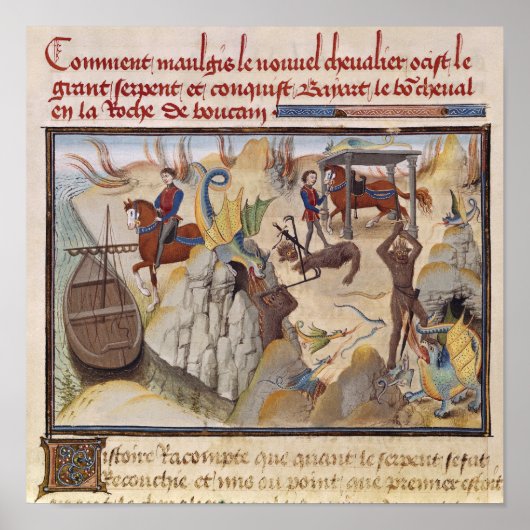 Comment maulgis le nouvel chevalier, ocist le
grant serpent et conquist Bayart, le bō cheval
en la Roche de boucam.
histoire Racompte que quant le serpent se fut
Recouchie et mis ou point que premier estoit